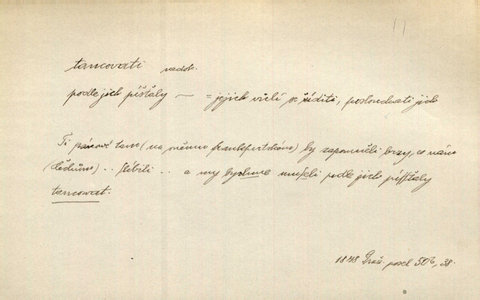 tancovati nedok.
podle jich píšťaly — = jejich vůlí se říditi, poslouchati jich
Ti pánové tam (na sněmu frankfurtském) by zapomněli brzy, co nám
.. slíbili .. a my bychme museli podle jich píšťaly
tancovat.
1848 posel 506, 38.